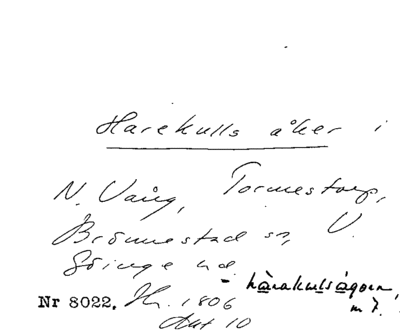 Harekulls åker i
N. Vång, Tormestorp,
Brönnestad sn, V.
Göinge hd.
- hàrakulsågorn,
m 7.
Nr 8022. Hr. 1806
Akt 10